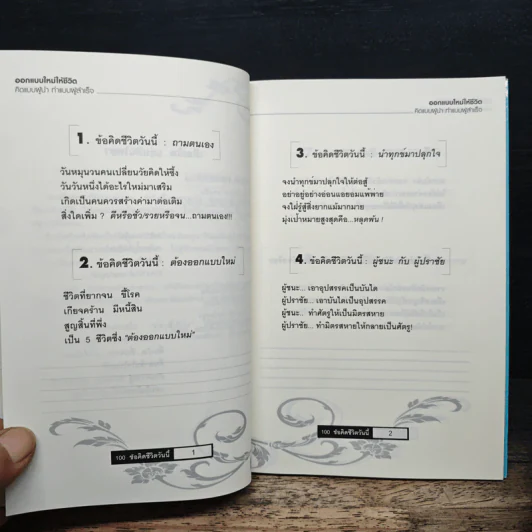 ออกแบบใหม่ให้ชีวิต
คิดแบบผู้นำ ทำแบบผู้สำเร็จ
1. ข้อคิดชีวิตวันนี้ : ถามตนเอง
วันหมุนวนคนเปลี่ยนวัยคิดให้ซึ้ง
วันวันหนึ่งได้อะไรใหม่มาเสริม
เกิดเป็นคนควรสร้างค่ามาต่อเติม
สิ่งใดเพิ่ม ? ดีหรือชั่ว/รวยหรือจน...ถามตนเอง!!!
2. ข้อคิดชีวิตวันนี้ : ต้องออกแบบใหม่
ชีวิตที่ยากจน ขี้โรค
เกียจคร้าน มีหนี้สิน
สูญสิ้นที่พึ่ง
เป็น 5 ชีวิตซึ่ง "ต้องออกแบบใหม่"
100 ข้อคิดชีวิตวันนี้ 1
ออกแบบใหม่ให้ชีวิต
คิดแบบผู้นำ ทำแบบผู้สำเร็จ
3. ข้อคิดชีวิตวันนี้ : นำทุกข์มาปลุกใจ
จงนำทุกข์มาปลุกใจให้ต่อสู้
อย่าอยู่อย่างอ่อนแอยอมแพ้พ่าย
จงใฝ่รู้สู้สิ่งยากแม้มากมาย
มุ่งเป้าหมายสูงสุดคือ...หลุดพ้น !
4. ข้อคิดชีวิตวันนี้ : ผู้ชนะ กับ ผู้ปราชัย
ผู้ชนะ... เอาอุปสรรคเป็นบันได
ผู้ปราชัย... เอาบันไดเป็นอุปสรรค
ผู้ชนะ... ทำศัตรูให้เป็นมิตรสหาย
ผู้ปราชัย... ทำมิตรสหายให้กลายเป็นศัตรู!
100 ข้อคิดชีวิตวันนี้ 2